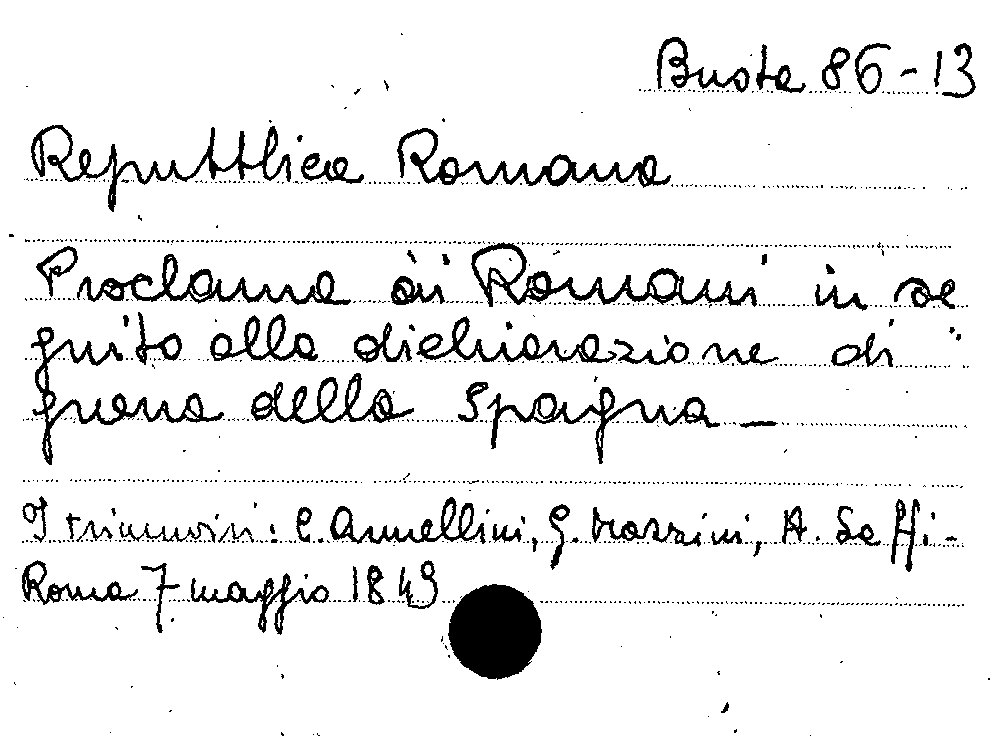 Busta 86-13
Repubblica Romana
Proclama ai Romani in se
guito alla dichiarazione di
guerra della Spagna_
I triumviri: C. Armellini, G. Mazzini, A. Saffi-
Roma 7 maggio 1849